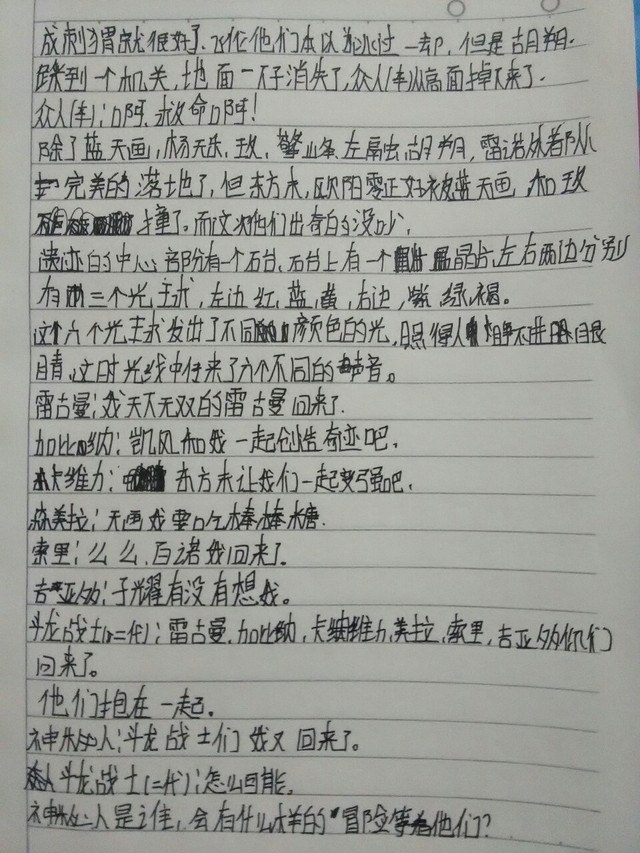 成刺猬就很好了、正在他们本以为冰过一却,但是胡朔.
踩到一个机关,地面一下子消失了,众人(车从高面掉下来了.
众人(车):口阿,救命口阿!
除了蓝天画,杨天乐,玫,擎峰,左扁虫,胡朔,雷诺
完美的落地了,但东方末,欧阳零正好被蓝天画和玫
撞了。而这次他们出奇的没吵,
遗迹的中心部份有一个石台,石台上有一个晶片,左右两边分别
有三个光球,左边红,蓝,黄,右边,紫,绿,褐。
这六个光球发出了不同颜色的光,照得人睁不开眼
睛,这时光线中传来了六个不同的声音。
雷古曼:我天下无双的雷古曼回来了.
加纳:凯风和我一起创造奇迹吧.
卡维力:东方末让我们一起变强吧.
美拉:天画我要吃棒棒糖.
索里:么么,百诺我回来了.
吉亚多:子耀有没有想我。
斗龙战士(二代):雷古曼,加纳,卡维力,美拉,索里,吉亚多你们
回来了。
他们抱在一起.
神秘人:斗龙战士们我又回来了。
斗龙战士(二代):怎么可能.
神秘人是谁,会有什么样的冒险等着他们?